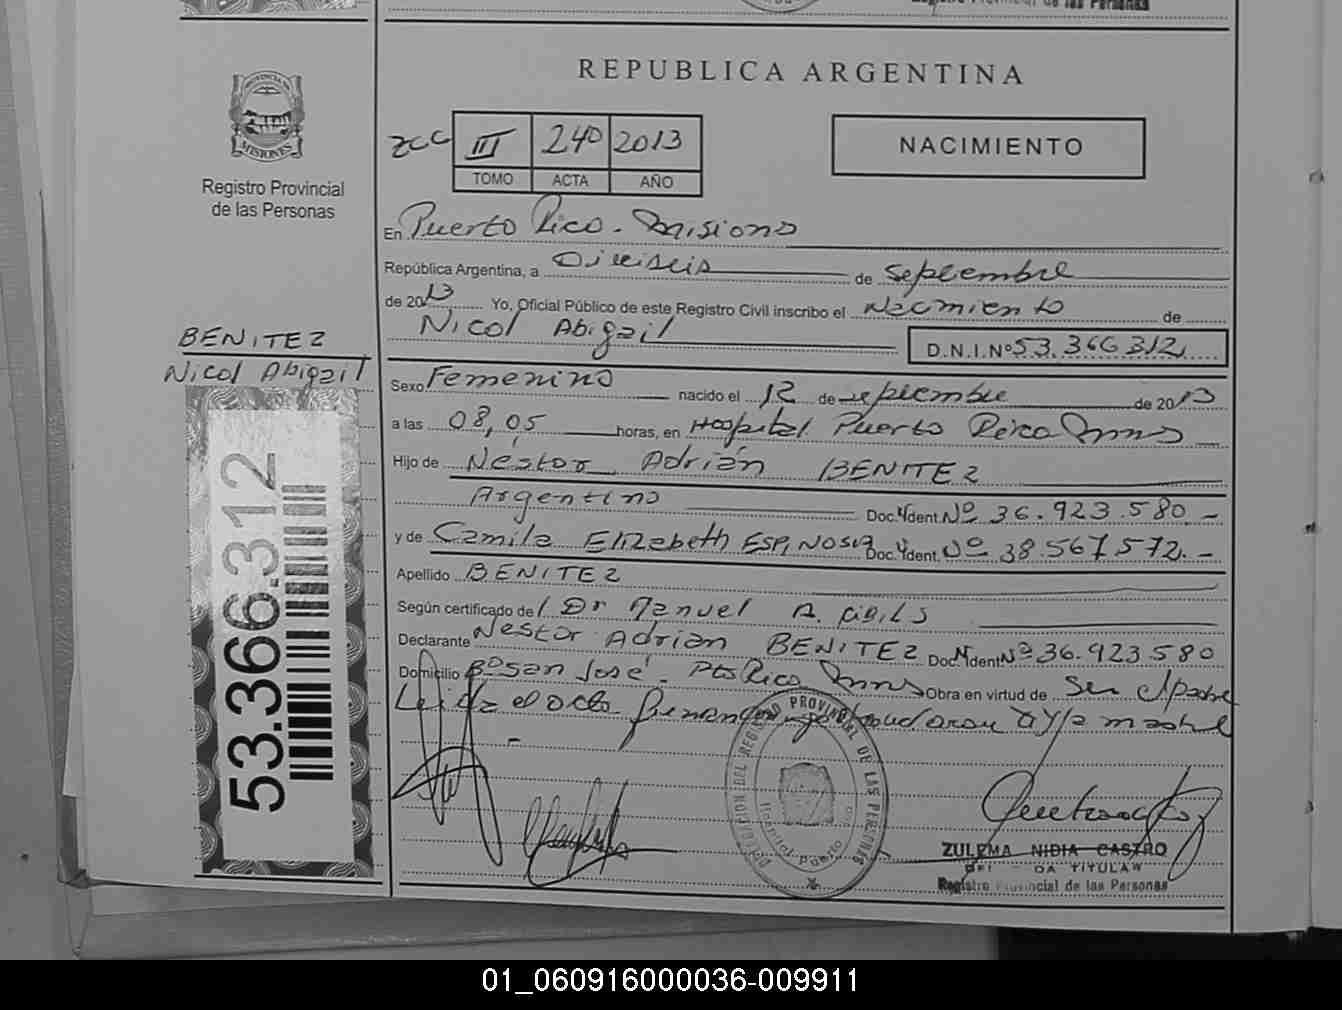 Registro Provincial de las Personas
REPUBLICA ARGENTINA
PROVINCIA DE
MISIONES
Registro Provincial
de las Personas
III 240 2013
TOMO ACTA AÑO
NACIMIENTO
En Puerto Rico - Misiones
República Argentina, a Dieciseis de septiembre
de 2013 Yo, Oficial Público de este Registro Civil inscribo el Nacimiento de
Nicol Abigail
D.N.I.Nº 53.366.312
BENITEZ
Nicol Abigail
53.366.312
Sexo Femenino nacido el 12 de septiembre de 2013
a las 08,05 horas, en Hospital Puerto Rico Mnes
Hijo de Néstor Adrián BENITEZ
Argentino Doc. Ident. Nº 36.923.580.-
y de Camila Elizabeth ESPINOSA Doc. Ident. Nº 38.567.572.-
Apellido BENITEZ
Según certificado del Dr Manuel A. CIBILS
Declarante Nestor Adrian BENITEZ Doc. Ident Nº 36.923.580
Domicilio Bº San José - Pto Rico Mnes Obra en virtud de Ser el padre
Leida el acta firman y la madre
DELEGACION DEL REGISTRO PROVINCIAL DE LAS PERSONAS
Hospital Puerto Rico
ZULEMA NIDIA CASTRO
TITULAR
Registro Provincial de las Personas
01_060916000036-009911